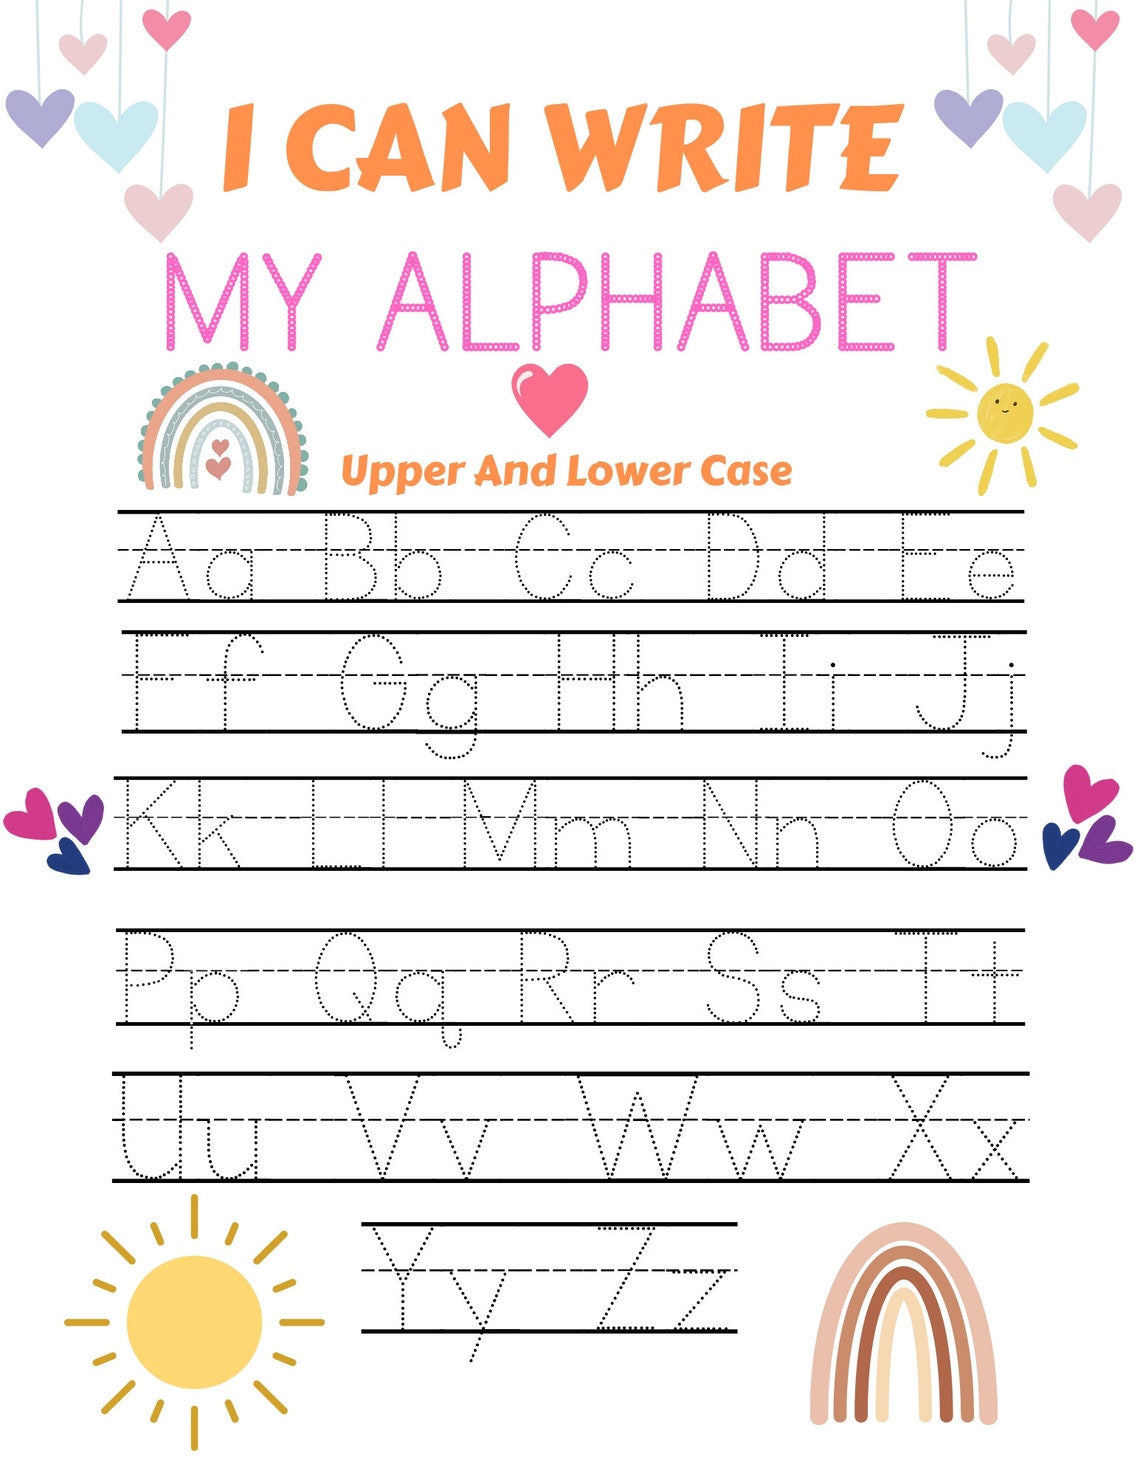 I CAN WRITE
MY ALPHABET
Upper And Lower Case
Aa Bb Cc Dd Ee
Ff Gg Hh Ii Jj
Kk Ll Mm Nn Oo
Pp Qq Rr Ss Tt
Uu Vv Ww Xx
Yy Zz